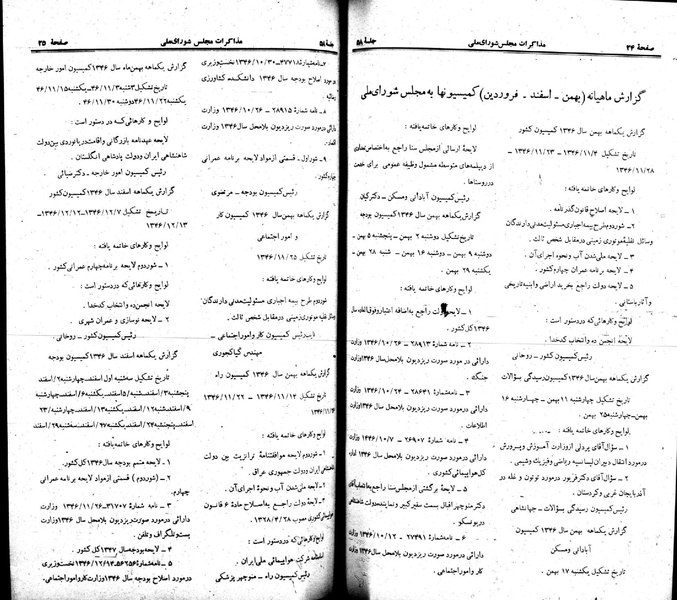 صفحهٔ ۳۴
مذاکرات مجلس شورای ملی
جلسهٔ ۵۸
گزارش ماهیانه (بهمن - اسفند - فروردین) کمیسیونها به مجلس شورای ملی
گزارش یکماهه بهمن سال ۱۳۴۶ کمیسیون کشور
تاریخ تشکیل ۱۳۴۶/۱۱/۴ - ۱۳۴۶/۱۱/۲۳ -
۱۳۴۶/۱۱/۲۸
لوایح وکارهای خاتمه یافته :
۱ ـ لایحه اصلاح قانون گذرنامه .
۲ ـ شوردوم طرح بیمه اجباری مسئولیت مدنی دارندگان
وسائل نقلیه موتوری زمینی درمقابل شخص ثالث .
۳ ـ لایحه ملی شدن آب ونحوه اجرای آن .
۴ ـ لایحه برنامه عمران چهارم کشور .
۵ ـ لایحه دولت راجع بخرید اراضی وابنیه تاریخی
وآثارباستانی .
لوایح وکارهائی که دردستور است :
لایحه انجمن ده وانتخاب کدخدا .
رئیس کمیسیون کشور ـ روحانی
گزارش یکماهه بهمن سال ۱۳۴۶ کمیسیون رسیدگی بسؤالات
تاریخ تشکیل چهارشنبه ۱۱ بهمن - چهارشنبه ۱۶
بهمن-چهارشنبه ۲۵ بهمن .
لوایح وکارهای خاتمه یافته :
۱ ـ سؤال آقای پردلی ازوزارت آموزش وپرورش
درمورد انتقال دبیران لیسانسیه ریاضی وفیزیک وشیمی .
۲ ـ سؤال آقای دکتر فربور درمورد توتون و غله در
آذربایجان غربی وکردستان .
رئیس کمیسیون رسیدگی بسؤالات ـ جهانشاهی
گزارش یکماهه بهمن سال ۱۳۴۶ کمیسیون
آبادانی ومسکن
تاریخ تشکیل یکشنبه ۱۷ بهمن .
لوایح وکارهای خاتمه یافته :
لایحهٔ ارسالی ازمجلس سنا راجع به اختصاص تعدادی
از دیپلمه‌های متوسطه مشمول وظیفه عمومی برای خدمت
درروستاها .
رئیس کمیسیون آبادانی ومسکن ـ دکتر کیان
گزارش یکماهه بهمن سال ۱۳۴۶ کمیسیون بودجه
تاریخ تشکیل دوشنبه ۲ بهمن - پنجشنبه ۵ بهمن
دوشنبه ۹ بهمن - دوشنبه ۱۶ بهمن - شنبه ۲۸ بهمن -
یکشنبه ۲۹ بهمن .
لوایح وکارهای خاتمه یافته :
۱ ـ لایحه دولت راجع به اضافه اعتبار وفوق العاده سال
۱۳۴۶ کل کشور .
۲ ـ نامه شمارهٔ ۲۸۹۱۳ - ۱۳۴۶/۱۰/۲۶ وزارت
دارائی درمورد صورت ریزدیون بلامحل سال ۱۳۴۶ وزارت
جنگ .
۳ ـ نامه شمارهٔ ۲۸۶۴۱ - ۱۳۴۶/۱۰/۲۴ وزارت
دارائی درمورد صورت ریزدیون بلامحل سال ۱۳۴۶ وزارت
اطلاعات .
۴ ـ نامه شمارهٔ ۲۶۹۰۷ - ۱۳۴۶/۱۰/۷ وزارت
دارائی درمورد صورت ریزدیون بلامحل سال ۱۳۴۶ اداره
کل هواپیمائی کشوری .
۵ ـ لایحهٔ برگشتی ازمجلس سنا راجع به انتصاب آقای
دکتر منوچهر اقبال بسمت سفیر کبیر ونماینده دولت شاهنشاهی
دریونسکو .
۶ ـ نامه شمارهٔ ۲۷۴۹۱ - ۱۳۴۶/۱۰/۱۲ وزارت
دارائی درمورد صورت ریزدیون بلامحل سال ۱۳۴۶ وزارت
کار وامور اجتماعی .
جلسهٔ ۵۸
مذاکرات مجلس شورای ملی
صفحهٔ ۳۵
۷ ـ نامه شمارهٔ ۴۷۷۱۸ - ۱۳۴۶/۱۰/۳۰ نخست وزیری
درمورد اصلاح بودجه سال ۱۳۴۶ دانشکده کشاورزی
رضائیه .
۸ ـ نامه شمارهٔ ۲۸۹۱۵ - ۱۳۴۶/۱۰/۲۶ وزارت
دارائی درمورد صورت ریزدیون بلامحل سال ۱۳۴۶ وزارت
۹ ـ شوراول - قسمتی ازمواد لایحه برنامه عمرانی
چهارم کشور .
رئیس کمیسیون بودجه ـ مرتضوی
گزارش یکماهه بهمن سال ۱۳۴۶ کمیسیون کار
و امور اجتماعی
تاریخ تشکیل ۱۳۴۶/۱۱/۲۵
لوایح وکارهای خاتمه یافته :
شوردوم طرح بیمه اجباری مسئولیت مدنی دارندگان
وسائل نقلیه موتوری زمینی درمقابل شخص ثالث .
نایب رئیس کمیسیون کار وامور اجتماعی ـ
مهندس گیاکجوری
گزارش یکماهه بهمن سال ۱۳۴۶ کمیسیون راه
تاریخ تشکیل ۱۳۴۶/۱۱/۱۴ - ۱۳۴۶/۱۱/۲۲ -
لوایح وکارهای خاتمه یافته :
۱ ـ شوردوم لایحه موافقتنامهٔ ترانزیت بین دولت
شاهنشاهی ایران ودولت جمهوری عراق .
۲ ـ لایحه ملی شدن آب ونحوهٔ اجرای آن .
۳ ـ لایحهٔ دولت راجع به اصلاح مادهٔ ۶ قانون
هواپیمائی کشوری مصوب ۱۳۲۸/۴/۲۸ .
لوایح وکارهائی که دردستور است :
اساسنامه شرکت هواپیمائی ملی ایران .
رئیس کمیسیون راه ـ منوچهر پزشکی
گزارش یکماهه بهمن ماه سال ۱۳۴۶ کمیسیون امور خارجه
تاریخ تشکیل ۳شنبه ۴۶/۱۱/۳ - یکشنبه ۴۶/۱۱/۱۵
یکشنبه ۴۶/۱۱/۲۲ و دوشنبه ۴۶/۱۱/۳۰ .
لوایح و کارهائی که در دستور است :
لایحه عهدنامه بازرگانی واقامت ودریانوردی بین دولت
شاهنشاهی ایران ودولت پادشاهی انگلستان .
رئیس کمیسیون امور خارجه ـ دکتر ضیائی
گزارش یکماهه اسفند سال ۱۳۴۶ کمیسیون کشور
تاریخ تشکیل ۱۳۴۶/۱۲/۷ - ۱۳۴۶/۱۲/۱۲ -
۱۳۴۶/۱۲/۱۳
لوایح وکارهای خاتمه یافته :
۱ ـ شوردوم لایحه برنامه چهارم عمرانی کشور .
لوایح وکارهائی که دردستور است :
لایحه انجمن ده وانتخاب کدخدا .
۲ ـ لایحه نوسازی و عمران شهری .
رئیس کمیسیون کشور ـ روحانی
گزارش یکماهه اسفند سال ۱۳۴۶ کمیسیون بودجه
تاریخ تشکیل سه‌شنبه اول اسفند-چهارشنبه ۲/ اسفند
پنجشنبه ۳/ اسفند-شنبه ۵/ اسفند-یکشنبه ۶/ اسفند-چهارشنبه
۹/ اسفند-شنبه ۱۲/ اسفند-یکشنبه ۱۳/ اسفند-چهارشنبه ۲۳/
اسفند-پنجشنبه ۲۴/ اسفند-یکشنبه ۲۷/ اسفند-سه‌شنبه ۲۹/ اسفند .
لوایح وکارهای خاتمه یافته :
۱ ـ لایحه متمم بودجه سال ۱۳۴۶ کل کشور .
۲ ـ (شوردوم) قسمتی ازمواد لایحه برنامه عمرانی
چهارم .
۳ ـ نامه شمارهٔ ۳۱۷۰۷ - ۱۳۴۶/۱۱/۲۶ وزارت
دارائی درمورد صورت ریزدیون بلامحل سال ۱۳۴۶ وزارت
پست وتلگراف وتلفن .
۴ ـ لایحه بودجه سال ۱۳۴۷ کل کشور .
۵ ـ نامه شمارهٔ ۵۶۲۵۶ - ۱۳۴۶/۱۲/۱۴ نخست وزیری
درمورد اصلاح بودجه سال ۱۳۴۶ وزارت کار وامور اجتماعی .